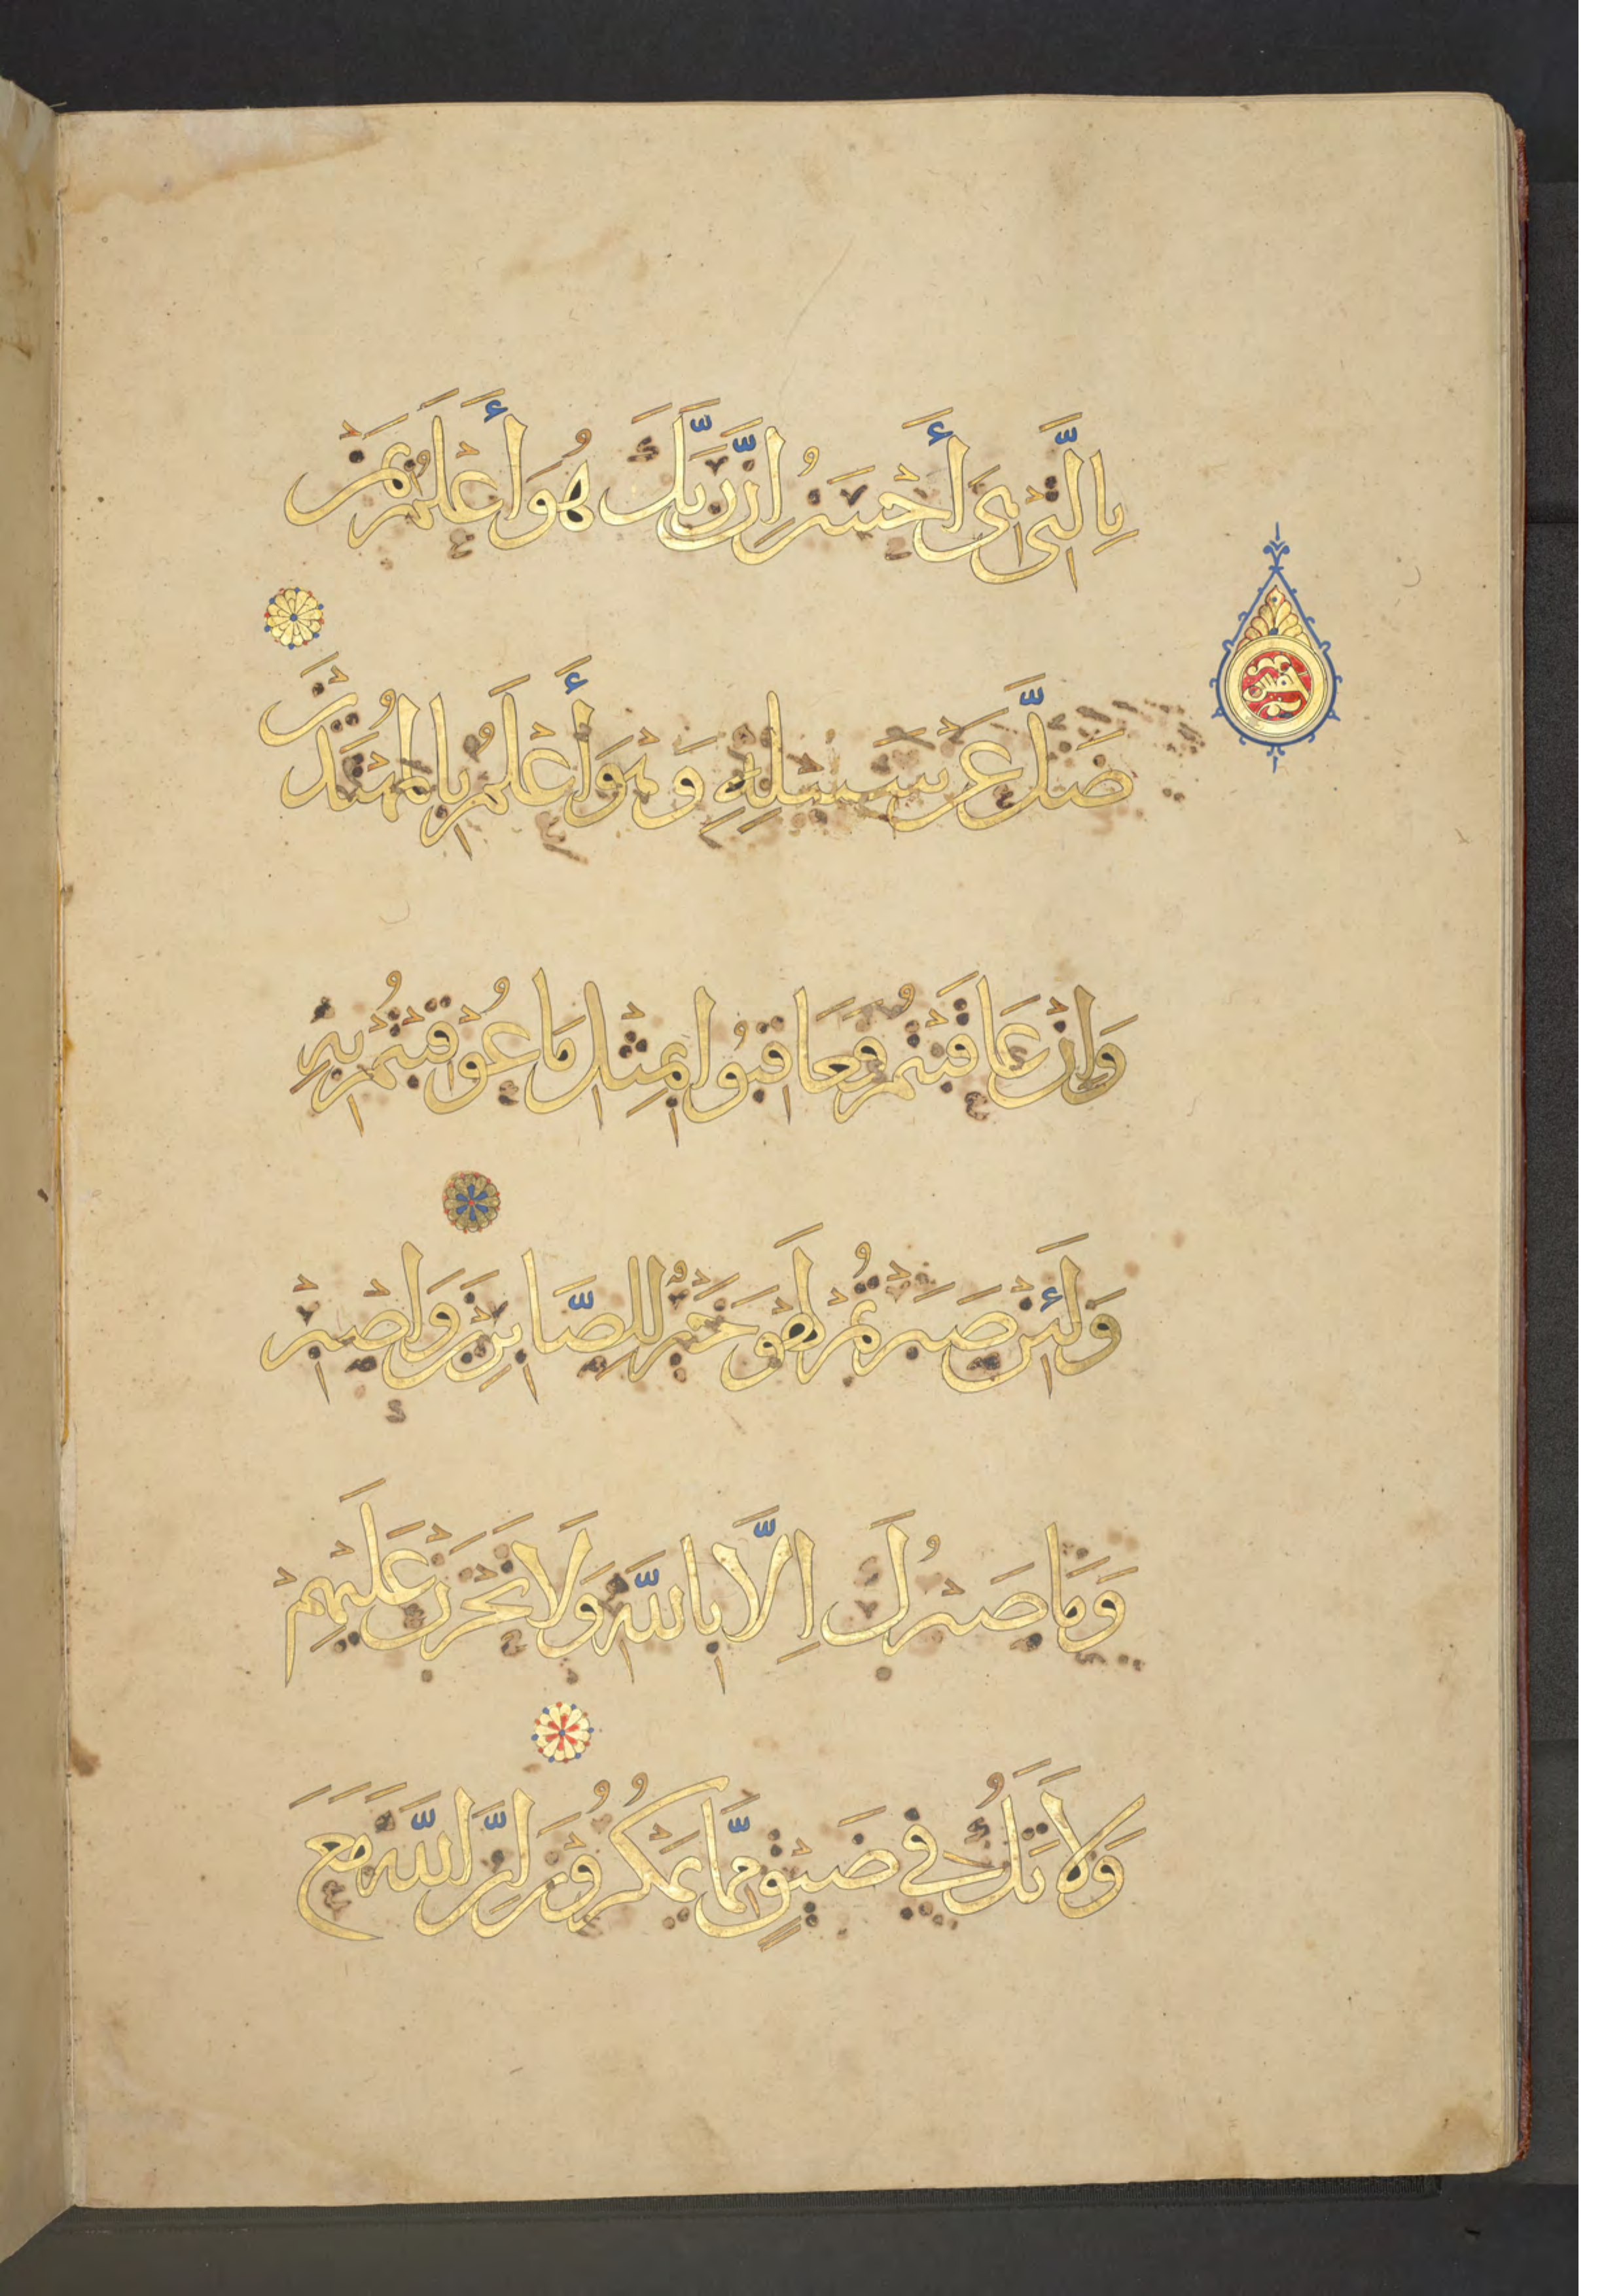 بِالَّتِي هِيَ أَحْسَنُ اِنَّ رَبَّكَ هُوَ أَعْلَمُ بِمَنْ
ضَلَّ عَنْ سَبِيْلِهِ وَهْوَ أَعْلَمُ بِالْمُهْتَدِيْنَ
وَاِنْ عَاقَبْتُمْ فَعَاقِبُوا بِمِثْلِ مَا عُوْقِبْتُمْ بِهِ
وَلَئِنْ صَبَرْتُمْ لَهْوَ خَيْرٌ لِلصَّابِرِيْنَ وَاصْبِرْ
وَمَا صَبْرُكَ اِلَّا بِاللَّهِ وَلَا تَحْزَنْ عَلَيْهِمْ
وَلَا تَكُ فِي ضَيْقٍ مِمَّا يَمْكُرُوْنَ اِنَّ اللَّهَ مَعَ